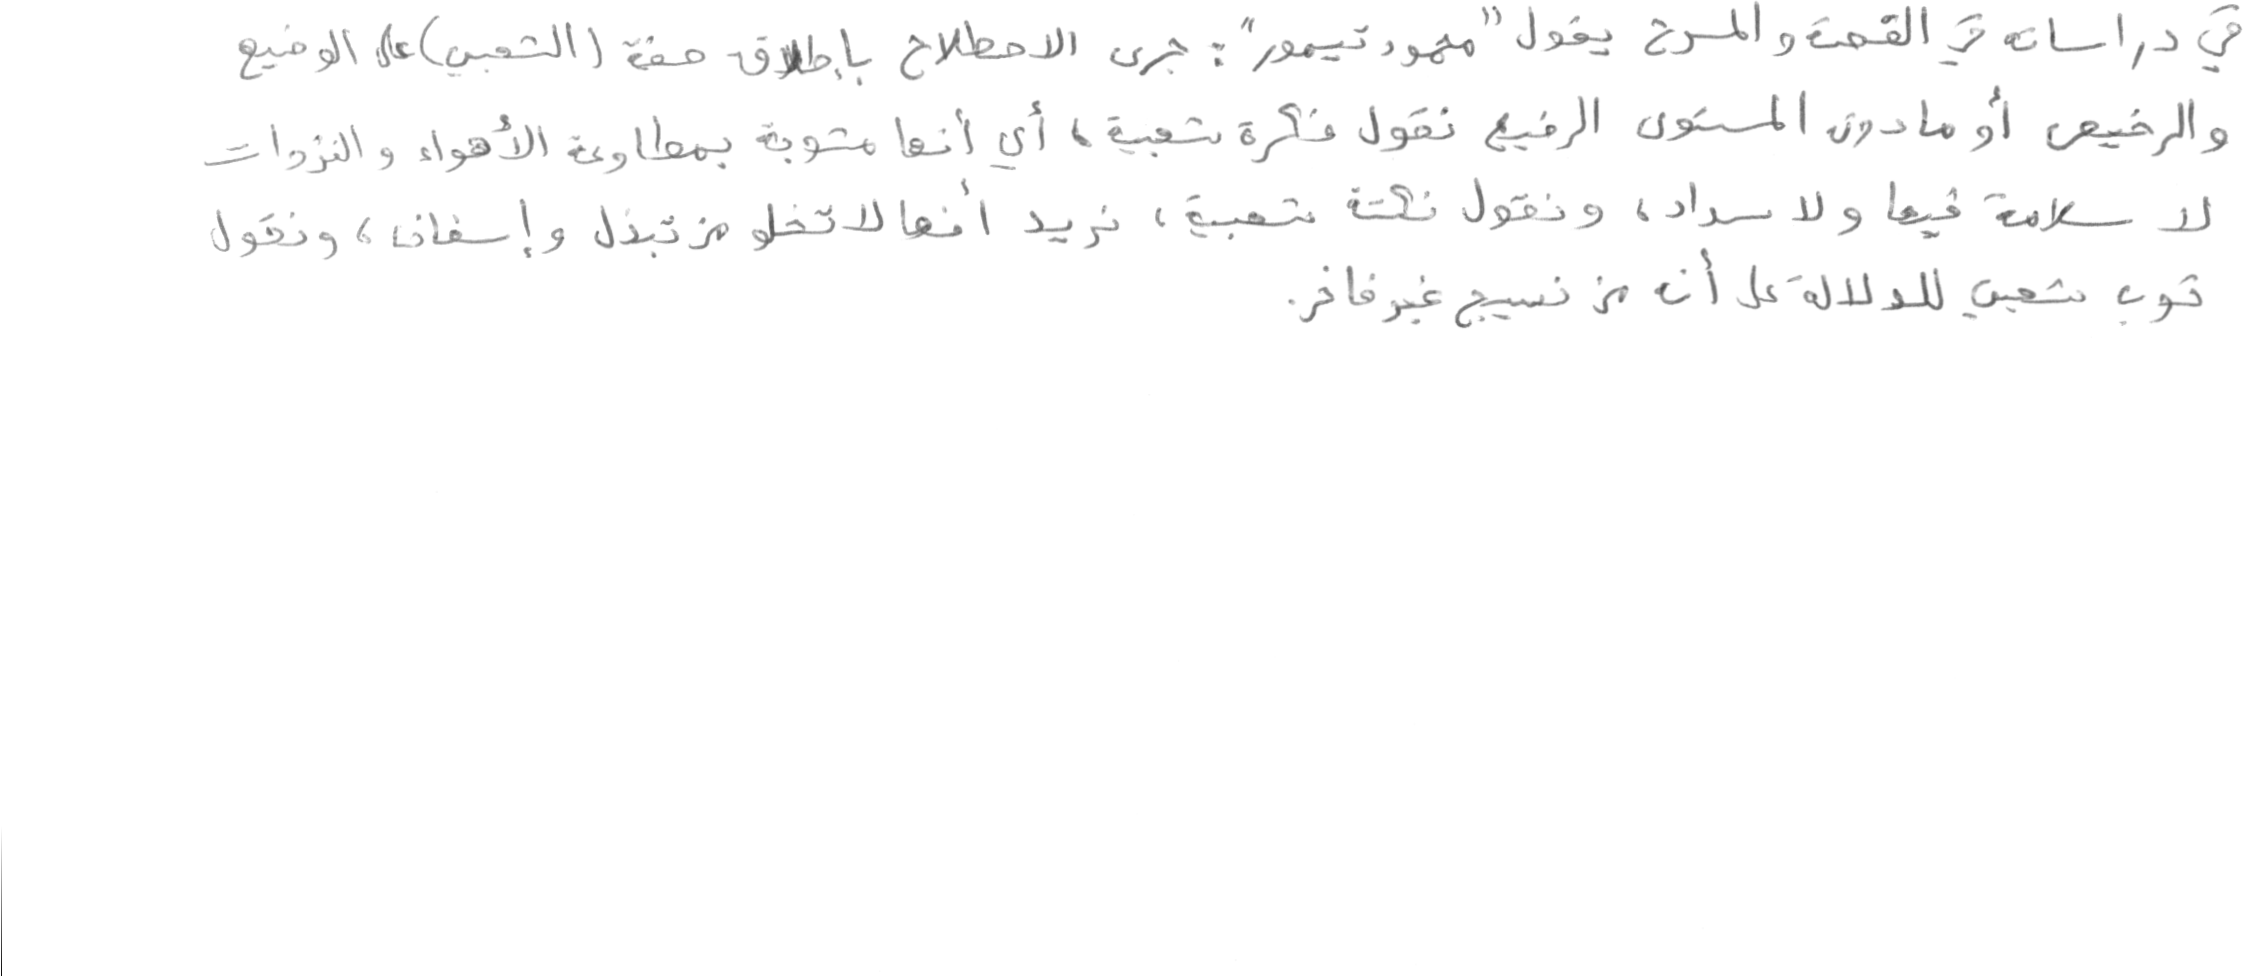 في دراساته في القصة والمسرح يقول "محمود تيمور": جرى الاصطلاح بإطلاق صفة (الشعبي) على الوضيع
والرخيص أو ما دون المستوى الرفيع نقول فكرة شعبية، أي أنها مشوبة بمطاوعة الأهواء والنزوات
لا سلامة فيها ولا سداد، ونقول نكتة شعبية، نريد أنها لا تخلو من تبذل وإسفاف، ونقول
ثوب شعبي للدلالة على أنه من نسيج غير فاخر.